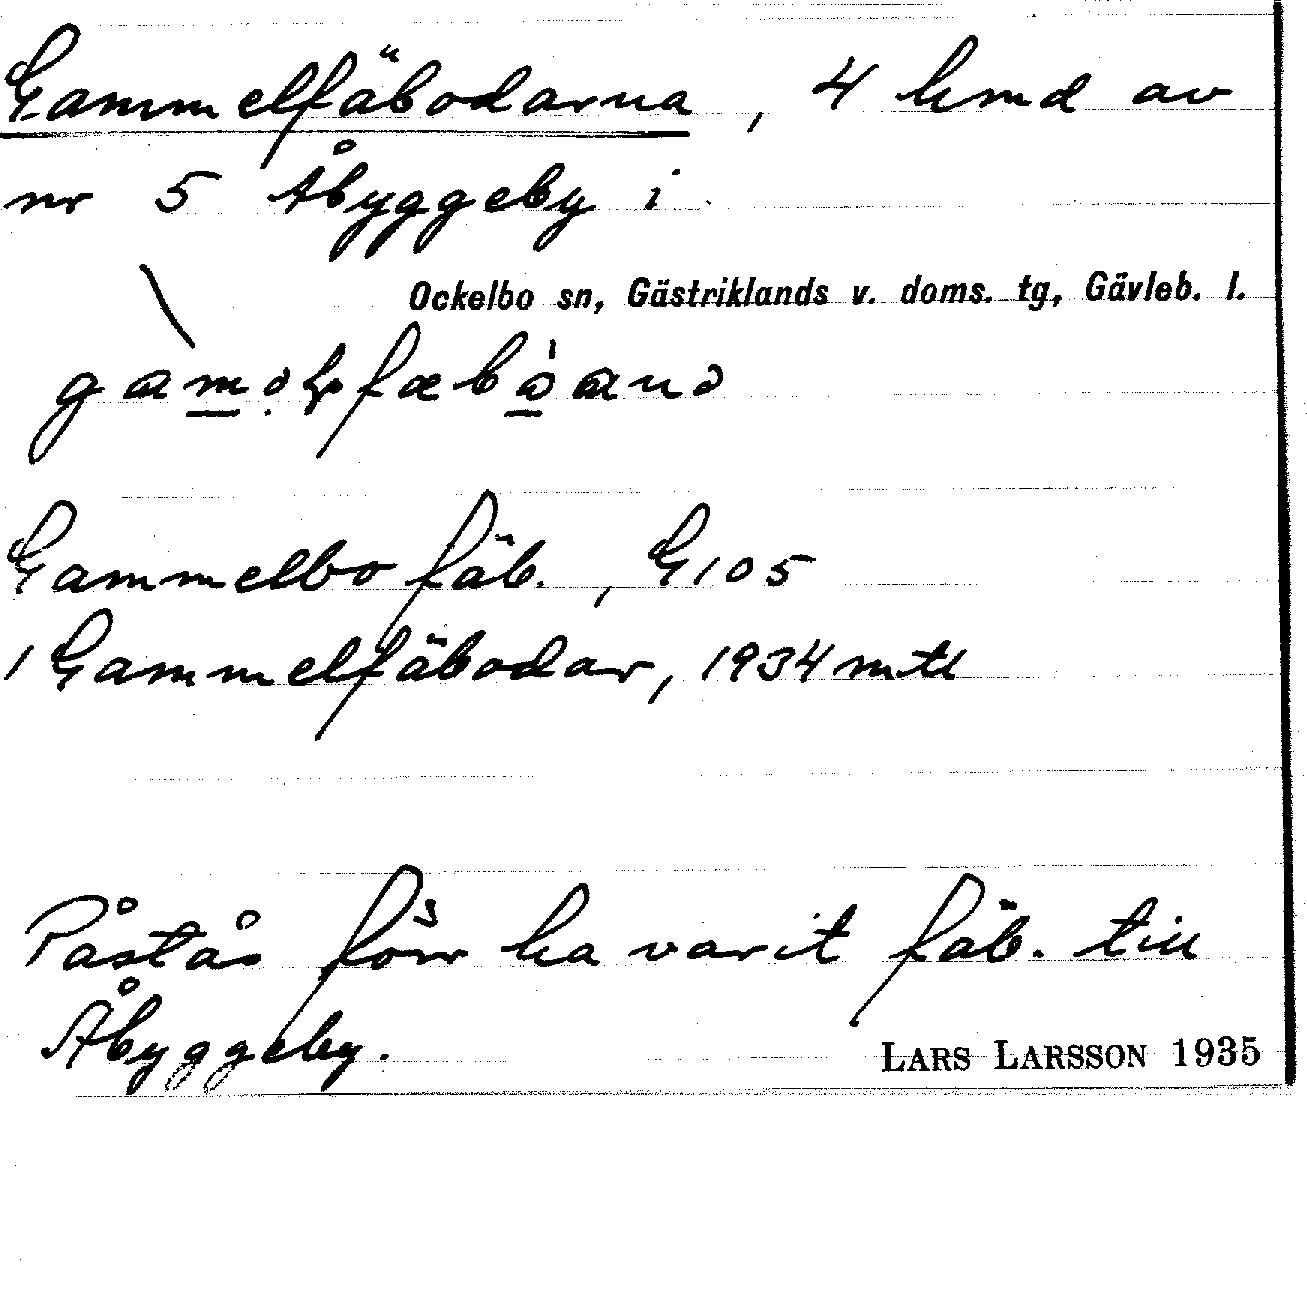 Gammelfäbodarna, 4 hmd av
nr 5 Åbyggeby i
Ockelbo sn, Gästriklands v. doms. tg, Gävleb. l.
Gammelbo fäb., G105
1 Gammelfäbodar, 1934 mtl
Påstås förr ha varit fäb. till
Åbyggeby.
LARS LARSSON 1935